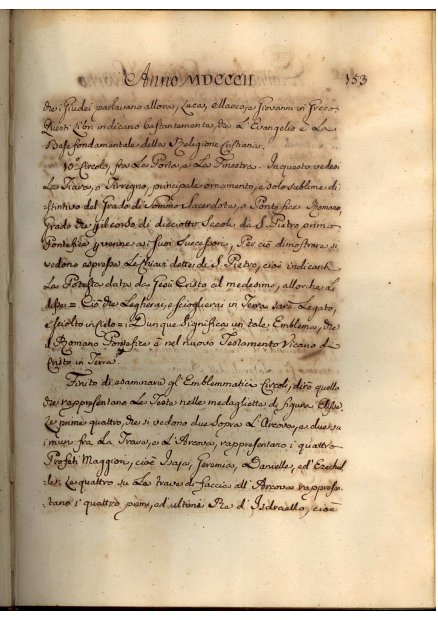 Anno MDCCCII 153
che i Giudei parlavano allora, Luca, e Marco, e Giovanni in Greco.
Questi libri indicano bastantemente, che L'Evangelio è La
Base fondamentale della Religione Cristiana.
10.º Circolo, fra La Porta, e La Finestra. In questo vedesi
La Tiara, o Triregno, principale ornamento, e solo sublime di-
stintivo del Grado di Sommo Sacerdote, o Pontefice Romano,
Grado che pel corso di dieciotto Secoli da S. Pietro primo
Pontefice pervenne a' suoi Successori. Per ciò dimostrare si
vedono espresse Le Chiavi dette di S. Pietro, cioè indicanti
La Potestà data da Gesù Cristo al medesimo, allorchè al
disse = Ciò che Legherai, e scioglierai in Terra sarà Legato,
e sciolto in Cielo = Dunque significa un tale Emblema, che
il Romano Pontefice è nel nuovo Testamento Vicario di
Cristo in Terra.
Finito di esaminare gl' Emblemmatici Circoli, dirò quello
che rappresentano Le Teste nelle medagliette di figura
Le prime quattro, che si vedono due sopra L'Arcova, e due su
i muri fra La Trave, e L'Arcova, rappresentano i quattro
Profeti Maggiori, cioè Isaja, Geremia, Danielle, ed Ezechiel-
le: Le quattro su La trave di faccia all' Arcova rappresen-
tano i quattro primi, ed ultimi Re d'Isdraello, cioè